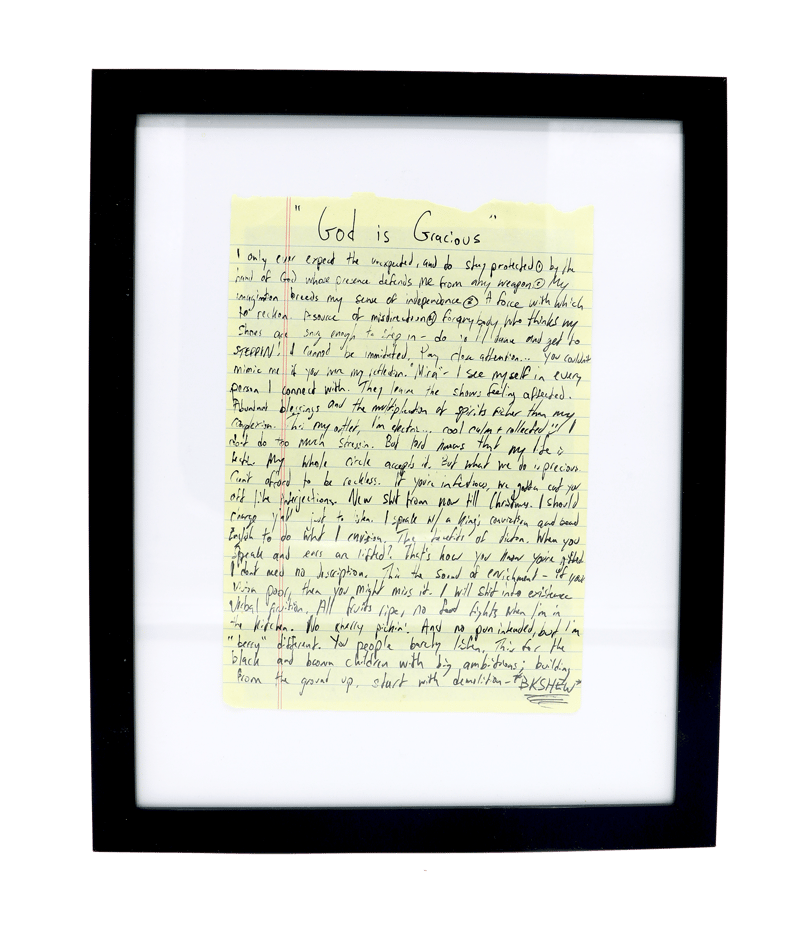 "God is Gracious"
I only ever expect the unexpected, and do stay protected by the
hand of God whose presence defends me from any weapon. My
imagination breeds my sense of independence. A force with which
to reckon. A source of misdirection for anybody who thinks my
shoes are snug enough to step in - do is I'll dance and get to
STEPPIN! I cannot be immitated. Pay close attention... you couldn't
mimic me if you were my "Mirin" - I see myself in every
person I connect with. They leave the shows feeling affected.
Abundant blessings and the multiplication of spirits richer than my
complexion. my outlet, I'm electric... cool calm + collected, I
don't do too much stressin. But lord knows that my life is
hectic. My whole circle accepts it. But what we do is precious
Can't afford to be reckless. If you're infectious, we gotta cut you
off like interjections. New shit from now till Christmas. I should
charge y'all just to listen. I speak w/ a king's conviction and bend
English to do what I envision. The benefits of diction. When you
speak and ears are lifted? That's how you know you're gifted
I don't need no description. This the sound of enrichment - if your
vision poor, then you might miss it. I will shit into existence
Verbal fruition. All fruits ripe, no food fights when I'm in
the kitchen. No cherry pickin'. And no pun intended, but I'm
"berry" different. You people barely listen. This for the
black and brown children with big ambitions; building
from the ground up, start with demolition - "BKSHEW"